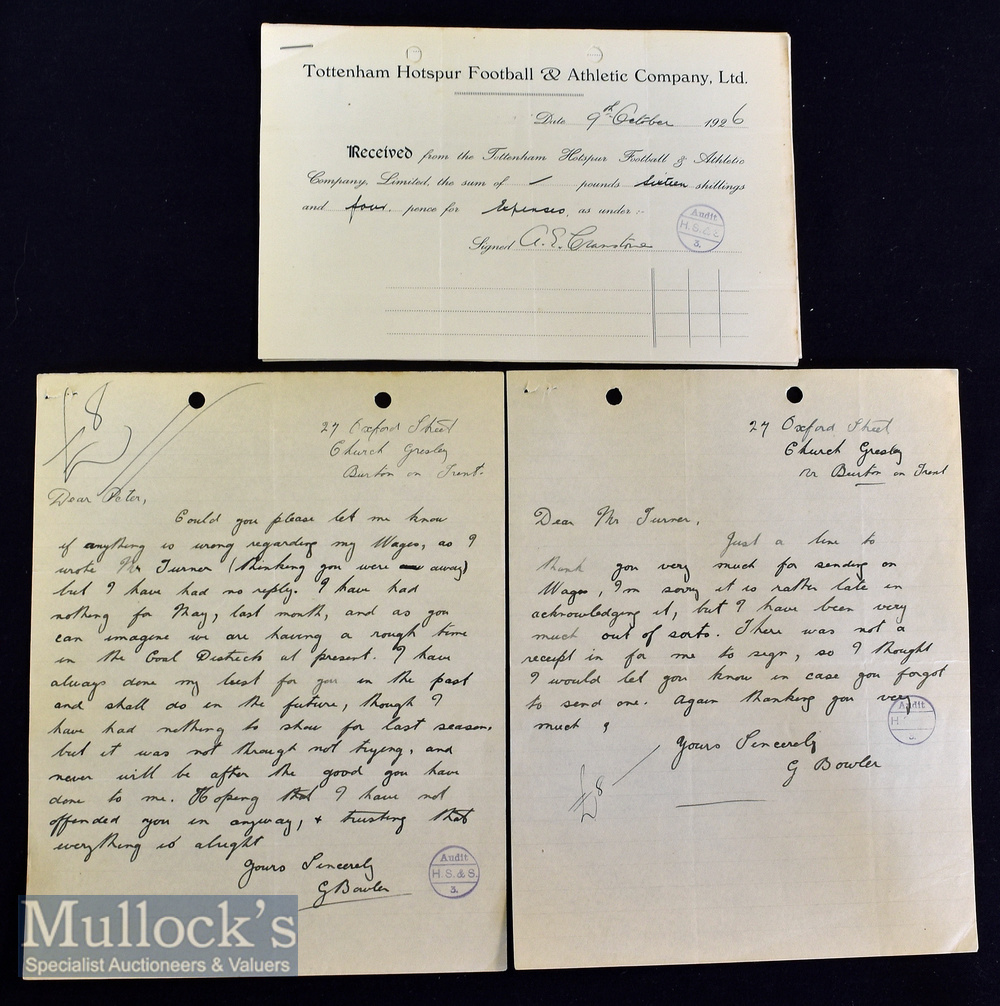 Tottenham Hotspur Football & Athletic Company, Ltd.
Date 9th October 1926
Received from the Tottenham Hotspur Football & Athletic
Company, Limited, the sum of / pounds Sixteen shillings
and four pence for Expenses, as under :-
Signed A. E. Cranstone
Audit
H. S. & S.
3.
£8
27 Oxford Street
Church Gresley
Burton on Trent.
Dear Peter,
Could you please let me know
if anything is wrong regarding my Wages, as I
wrote Mr Turner (thinking you were away)
but I have had no reply. I have had
nothing for May, last month, and as you
can imagine we are having a rough time
in the Coal Districts at present. I have
always done my best for you in the past
and shall do in the future, though I
have had nothing to show for last season,
but it was not through not trying, and
never will be after the good you have
done to me. Hoping that I have not
offended you in anyway, & trusting that
everything is alright
Yours Sincerely
G Bowler
Audit
H. S. & S.
3.
27 Oxford Street
Church Gresley
Nr Burton on Trent
Dear Mr Turner,
Just a line to
thank you very much for sending on
Wages, I'm sorry it is rather late in
acknowledging it, but I have been very
much out of sorts. There was not a
receipt in for me to sign, so I thought
I would let you know in case you forgot
to send one. Again thanking you very
much,
Yours Sincerely
G Bowler
£8
Audit
H.
3.
Mullock's
Specialist Auctioneers & Valuers